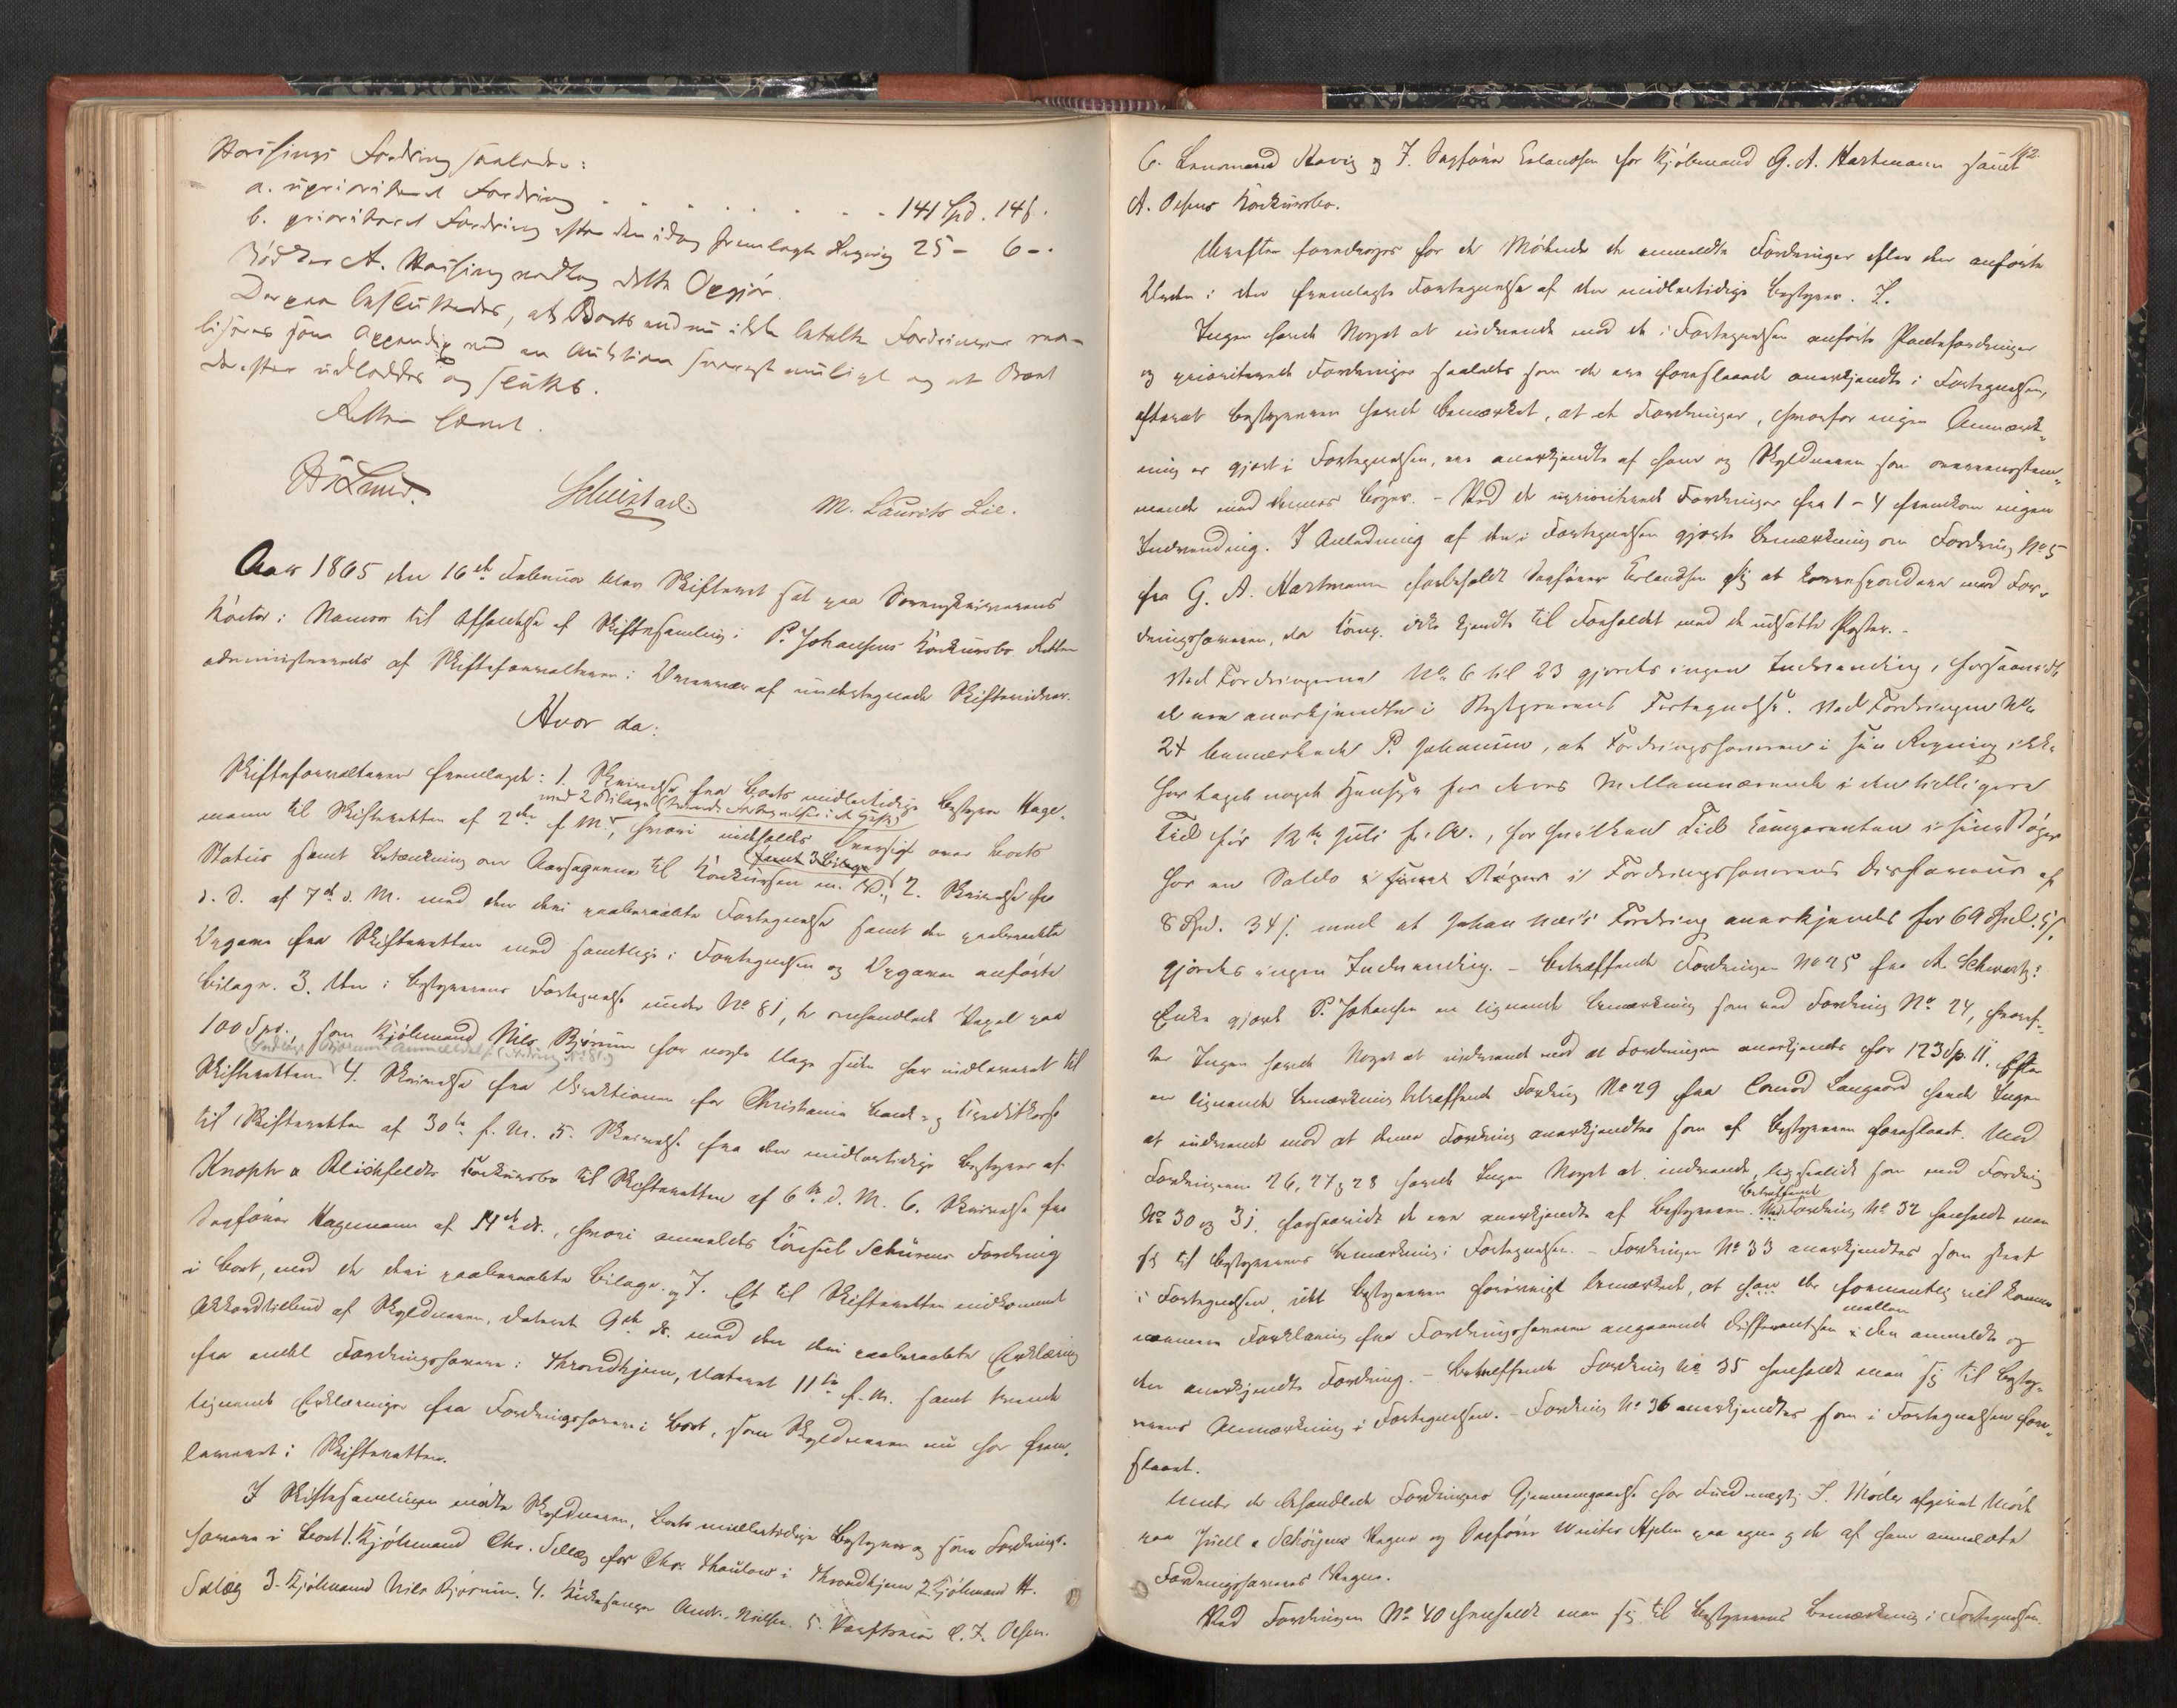 Harsings Fordring saaledes:
a. uprioriteret Fordring . . . . . . . . 141 Spd. 14 ſ.
b. prioriteret Fordring efter den idag fremlagte Regning 25 - 6 -.
A. Harsing vedtog dette Opgjør.
Derpaa besluttedes, at Boets endnu ikke betalte Fordringer rea-
liseres som Appendix ved en Auktion snarest muligt og at Boet
derefter udloddes og sluttes.
Retten hævet.
M. Laurits Lie.
Aar 1865 den 16de Februar blev Skifteret sat paa Sorenskriverens
Kontor i Namsos til Afholdelse af Skiftesamling i P. Johansens Konkursbo. Retten
administreredes af Skifteforvalteren i Overvær af undertegnede Skiftevidner.
Hvor da:
Skifteforvalteren fremlagde: 1. Skrivelse fra Boets midlertidige Bestyrer Hage-
med 2 Bilage
mann til Skifteretten af 2den f. M., hvori indholdes Oversigt over Boets
samt 3 Bilage
Status samt Betænkning om Aarsagerne til Konkursen m. V., 2. Skrivelse fra
s. d. af 7de d. M. med den deri paaberaabte Fortegnelse samt den paaberaabte
Opgave fra Skifteretten med samtlige i Fortegnelsen og Opgaven anførte
Bilage. 3. Den i Bestyrerens Fortegnelse under No 81, b omhandlede Vexel paa
100 Spd., som Kjøbmand Nils Bjørum for nogle Dage siden har indleveret til
Skifteretten. 4. Skrivelse fra Direktionen for Christiania Bank- og Kreditkasse
til Skifteretten af 30te f. M. 5. Skrivelse fra den midlertidige Bestyrer af
Knoph & Bleichfeldts Konkursbo til Skifteretten af 6te d. M. 6. Skrivelse fra
Sagfører Hagemann af 14de ds., hvori anmeldes Consul Schürens Fordring
i Boet, med de deri paaberaabte Bilage. og 7. Et til Skifteretten indkommet
Akkordtilbud af Skyldneren, dateret 9de ds. med den deri paaberaabte Erklæring
fra endel Fordringshavere i Throndhjem, dateret 11te f. M. samt trende
lignende Erklæringer fra Fordringshavere i Boet, som Skyldneren nu har frem-
leveret i Skifteretten.
I Skiftesamlingen mødte Skyldneren, Boets midlertidige Bestyrer og som Fordrings-
havere i Boet 1. Kjøbmand Chr. Sellæg for Chr. Thaulow i Throndhjem 2. Kjøbmand H.
Sellæg 3. Kjøbmand Nils Bjørum. 4. Kirkesanger Andr. Nielsen. 5. C. J. Olsen.
6. Lensmand Havig og 7. Sagfører Erlandsen for Kjøbmand G. A. Hartmann samt
A. Olsens Konkursbo.
Derefter foredroges for de Mødende de anmeldte Fordringer efter den anførte
Orden i den fremlagte Fortegnelse af den midlertidige Bestyrer.
Ingen havde Noget at indvende mod de i Fortegnelsen anførte Pantefordringer
og prioriterede Fordringer saaledes som de ere foreslaaede anerkjendte i Fortegnelsen,
efterat Bestyreren havde bemærket, at de Fordringer, hvorfor ingen Anmærk-
ning er gjort i Fortegnelsen, ere anerkjendte af ham og Skyldneren som overensstem-
mende med dennes Bøger. - Ved de uprioriterede Fordringer fra 1 - 4 fremkom ingen
Indvending. I Anledning af den i Fortegnelsen gjorte Bemærkning om Fordring No 5
fra G. A. Hartmann forbeholdt Sagfører Erlandsen sig at korrespondere med For-
dringshaveren, da Comp. ikke kjendte til Forholdet med de udsatte Poster. -
Ved Fordringerne No 6 til 23 gjordes ingen Indvending, forsaavidt
de ere anerkjendte i Bestyrerens Fortegnelse. Ved Fordringen No
24 bemærkede P. Johansen, at Fordringshaveren i sin Regning ikke
har taget noget Hensyn for deres Mellemværende i den tidligere
Tid før 12te Juli f. A., for hvilken Tid Comparenten i sine Bøger
har en Saldo i Fordringshaverens Disfaveur af
8 Spd. 34 ſ. mod at Johan Fordring anerkjendes for 69 Spd. 5 ſ.
gjordes ingen Indvending. - Betræffende Fordringen No 25 fra A. Schwartz's
Enke gjorde P. Johansen en lignende Bemærkning som ved Fordring No 24, hvoref-
ter Ingen havde Noget at indvende mod at Fordringen anerkjendes for 123 Sp. 11. Efter
en lignende Bemærkning betræffende Fordring No 29 fra Conrad Langaard havde Ingen
at indvende mod at denne Fordring anerkjendtes som af Bestyreren foreslaaet. Mod
Fordringerne 26, 27 og 28 havde Ingen Noget at indvende, ligesaalidt som mod Fordring
betræffende
No 30 og 31, forsaavidt de ere anerkjendte af Bestyreren. Fordring No 32 henholdt man
sig til Bestyrerens Bemærkning i Fortegnelsen. - Fordringen No 33 anerkjendtes som skeet
i Fortegnelsen, idet Bestyreren forøvrigt bemærkede, at der formentlig vil komme
mellem
nærmere Forklaring fra Fordringshaveren angaaende Differentsen den anmeldte og
den anerkjendte Fordring. - Betræffende Fordring No 35 henholdt man sig til Besty-
rerens Anmærkning i Fortegnelsen. - Fordring No 36 anerkjendtes som i Fortegnelsen fore-
slaaet.
Under de behandlede Fordringers Gjennemgaaelse har Fuldmægtig J. Møller afgivet Møde
paa Juell & Schöyens Vegne og Sagfører Winter Hjelm paa egne og de af ham anmeldte
Fordringshaveres Vegne.
Ved Fordringen No 40 henholdt man sig til Bestyrerens Bemærkning i Fortegnelsen.